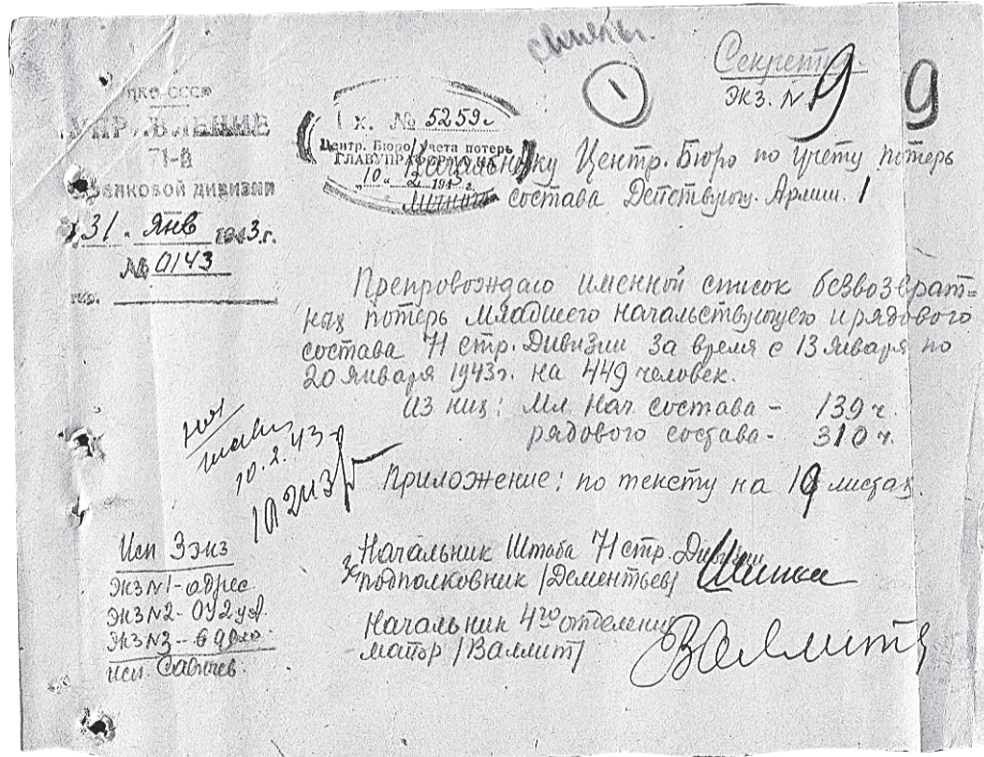 Секретн.
экз. №
9
9
1
НКО-СССР
УПРАВЛЕНИЕ
71-й
Стрелковой дивизии
31. Янв 1943.г.
№ 0143
гор.
Вх. № 5259с
Центр. Бюро учета потерь
ГЛАВУПРАФОРМ КА
"10" 2 1943 г.
Начальнику Центр. Бюро по учету потерь
личного состава Действующ. Армии. 1
Препровождаю именной список безвозврат-
ных потерь младшего начальствующего и рядового
состава 71 стр. Дивизии за время с 13 Января по
20 Января 1943г. на 449 человек.
Из них: Мл. Нач. состава - 139 ч.
рядового состава - 310 ч.
10.2.43
10 2 43
Приложение: по тексту на 19 листах.
Исп 3 экз
Экз №1 - адрес
Экз №2 - ОУ2уд.
Экз №3 - в дело
исп. Савичев.
Начальник Штаба 71 стр. Дивизии
подполковник /Дементьев/
Начальник 4го отделения
майор /Валлит/
Валлит